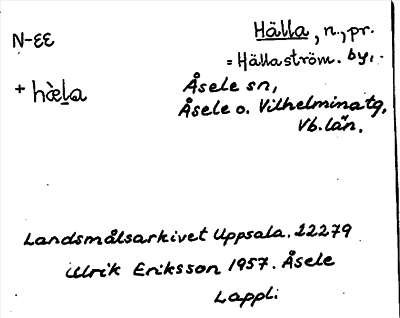 N-EE
Hälla, n., pr.
= Hällaström. by,.
+ hæ̀l̠a
Åsele sn,
Åsele o. Vilhelmina tg,
Vb. län.
Landsmålsarkivet Uppsala. 22279
Ulrik Eriksson 1957. Åsele
Lappl.